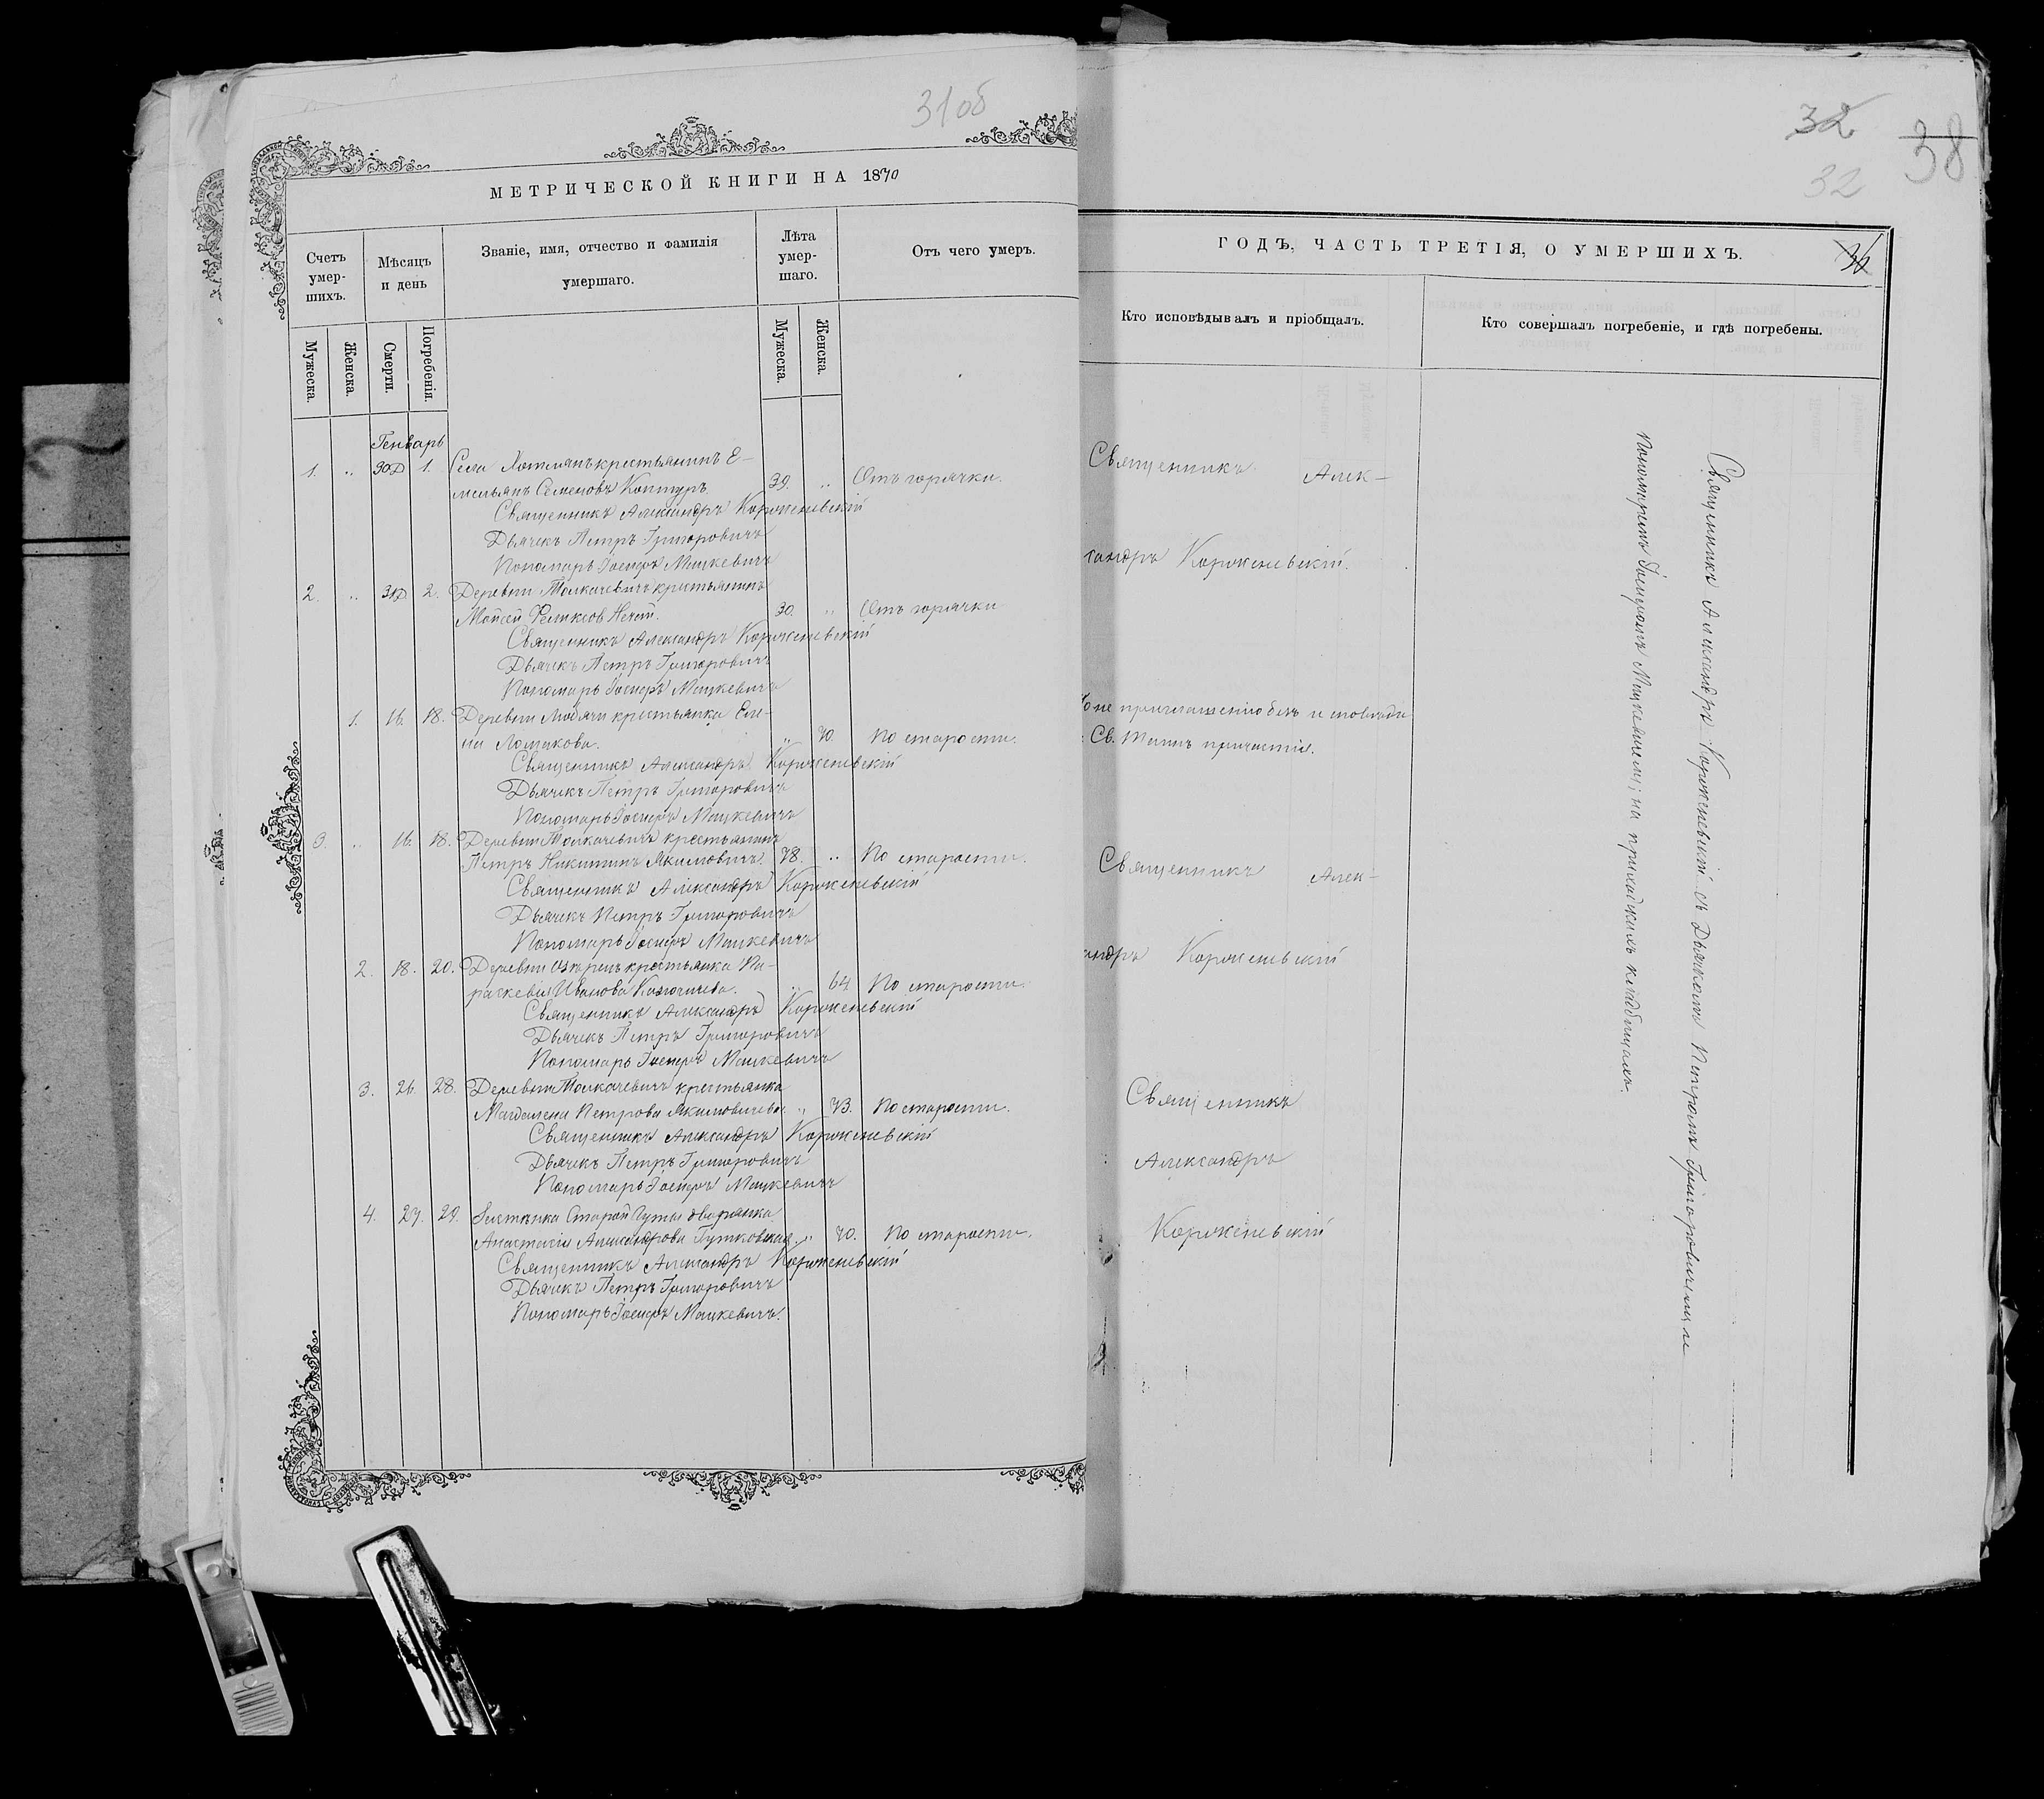 31об
МЕТРИЧЕСКОЙ КНИГИ НА 1870
Счетъ умер-шихъ.
Мѣсяцъ и день
Званіе, имя, отчество и фамилія
умершаго.
Лѣта умер-шаго.
Отъ чего умеръ.
Мужеска.
Женска.
Смерти.
Погребенія.
Мужеска.
Женска.
Генварь
1. „ 30Д 1. Села Хотлянъ крестьянинъ Е-
мельянъ Семеновъ 39. „ Отъ горячки.
Священникъ Александръ Корженевскій
Дьячекъ Петръ Григоровичъ
Пономарь Іосифъ Мацкевичъ
2. „ 31Д 2. Деревни Толкачевичъ крестьянинъ
Мойсей Феликсов 30. „ Отъ горячки
Священникъ Александръ Корженевскій
Дьячекъ Петръ Григоровичъ
Пономарь Іосифъ Мацкевичъ
1. 16. 18. Деревни крестьянка Еле-
на Ломакова. „ 70. По старости.
Священникъ Александръ Корженевскій
Дьячекъ Петръ Григоровичъ
Пономарь Іосифъ Мацкевичъ
3. „ 16. 18. Деревни Толкачевичъ крестьянинъ
Петръ Никитинъ Якимовичъ. 78. „ По старости.
Священникъ Александръ Корженевскій
Дьячекъ Петръ Григоровичъ
Пономарь Іосифъ Мацкевичъ
2. 18. 20. Деревни крестьянка Па-
раскевія Иванова „ 64 По старости.
Священникъ Александръ Корженевскій
Дьячекъ Петръ Григоровичъ
Пономарь Іосифъ Мацкевичъ
3. 26. 28. Деревни Толкачевичъ крестьянка
Магдалена Петрова Якимовичева „ 73. По старости.
Священникъ Александръ Корженевскій
Дьячекъ Петръ Григоровичъ
Пономарь Іосифъ Мацкевичъ
4. 27. 29. Застѣнка Старой Гуты дворянка
Анастасія Александрова Гутковская. „ 70. По старости.
Священникъ Александръ Корженевскій
Дьячекъ Петръ Григоровичъ
Пономарь Іосифъ Мацкевичъ.
32
38
32
ГОДЪ, ЧАСТЬ ТРЕТІЯ, О УМЕРШИХЪ.
36
Кто исповѣдывалъ и пріобщалъ.
Кто совершалъ погребеніе, и гдѣ погребены.
Священникъ Алек-
сандръ Корженевскій.
по не приглашенію безъ исповѣди
Св. Таинъ причастія.
Священникъ Алек-
сандръ Корженевскій
Священникъ
Александръ
Корженевскій
Священникъ Александръ Корженевскій съ Дьячкомъ Петромъ Григоровичемъ и
Пономаремъ Іосифомъ Мацкевичемъ; на приходскихъ кладбищахъ.